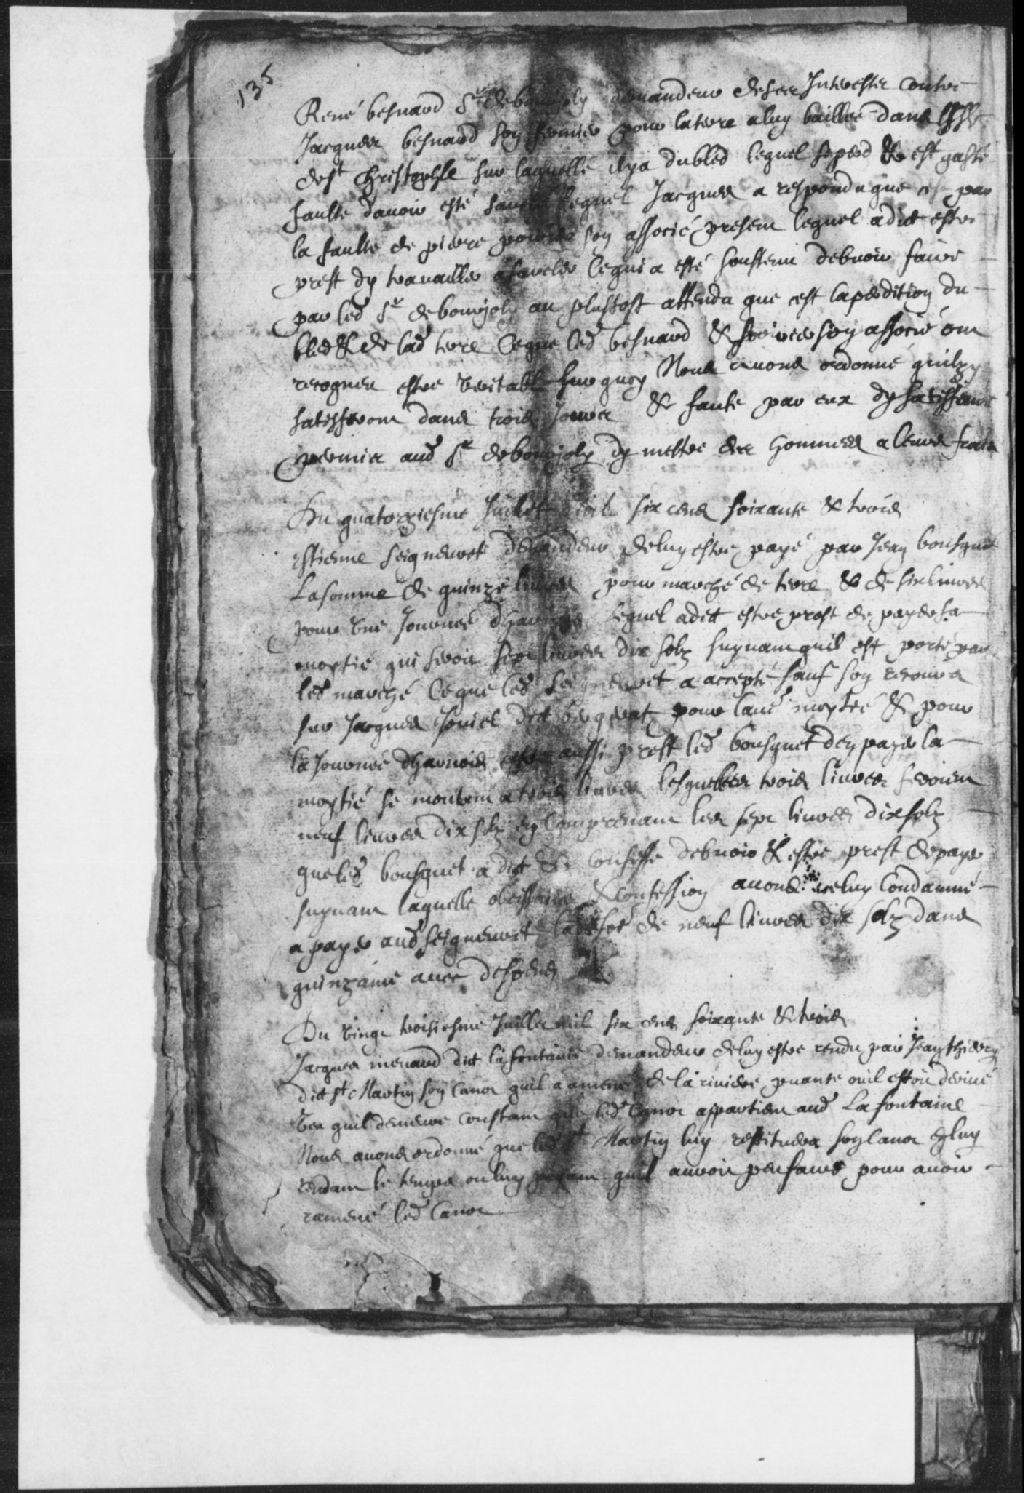 135
René besnard Sr de bourjoly demandeur de ses Interestz contre
Jacques besnard son fermier pour la terre a luy baillée dans
de st Christophle sur laquelle il y a du bled lequel se perd & est gasté
faulte d'avoir esté lequel Jacques a respondu que c'est par
la faulte de pierre son associé present lequel a dict estre
prest dy travailler a sarcler ce qui a esté soustenu debvoir faire
par led Sr de bourjoly au plustost attendu que cest la perdition du
bled & de lad terre Ce que led besnard & son associé ont
recogneu estre veritable sur quoy Nous avons ordonné quilz y
satisferont dans trois jours & faute par eux dy satisfaire
permis aud Sr de bourjoly dy mettre des hommes a leurs frais
Du quatorziesme Juillet mil six cens soixante & trois
Estienne Seigneuret demandeur de luy estre payé par Jean bousquet
La somme de quinze livres pour marché de terre & de six livres
pour une Journée d'harnois lequel a dict estre prest de payer sa
moytié qui seroit sept livres dix solz suyvant quil est porté par
led marché Ce que led Seigneuret a accepté sauf son recours
sur Jacques dict pour l'autre moytié & pour
la Journée d'harnois estre aussi prest led bousquet d'en payer la
moytié se montant a trois livres lesquelles trois livres feroient
neuf livres dix solz en comprenant les sept livres dix solz
que led bousquet a dict & confessé debvoir & estre prest de payer
suyvant laquelle & confession avons iceluy Condamné
a payer aud Seigneuret la de neuf livres dix solz dans
quinzaine avec despens
Du vingt troisiesme Juillet mil six cens soixante & trois
Jacques menard dict la fontaine demandeur de luy estre rendu par Jean
dict st Martin son Canot quil a amené de la riviere puante ou il estoit
veu quil demeure constant que led Canot appartient aud La fontaine
Nous avons ordonné que led st Martin luy restituera son Canot & luy
rendant le temps ou luy payant quil auroit peu faire pour avoir
ramené led Canot